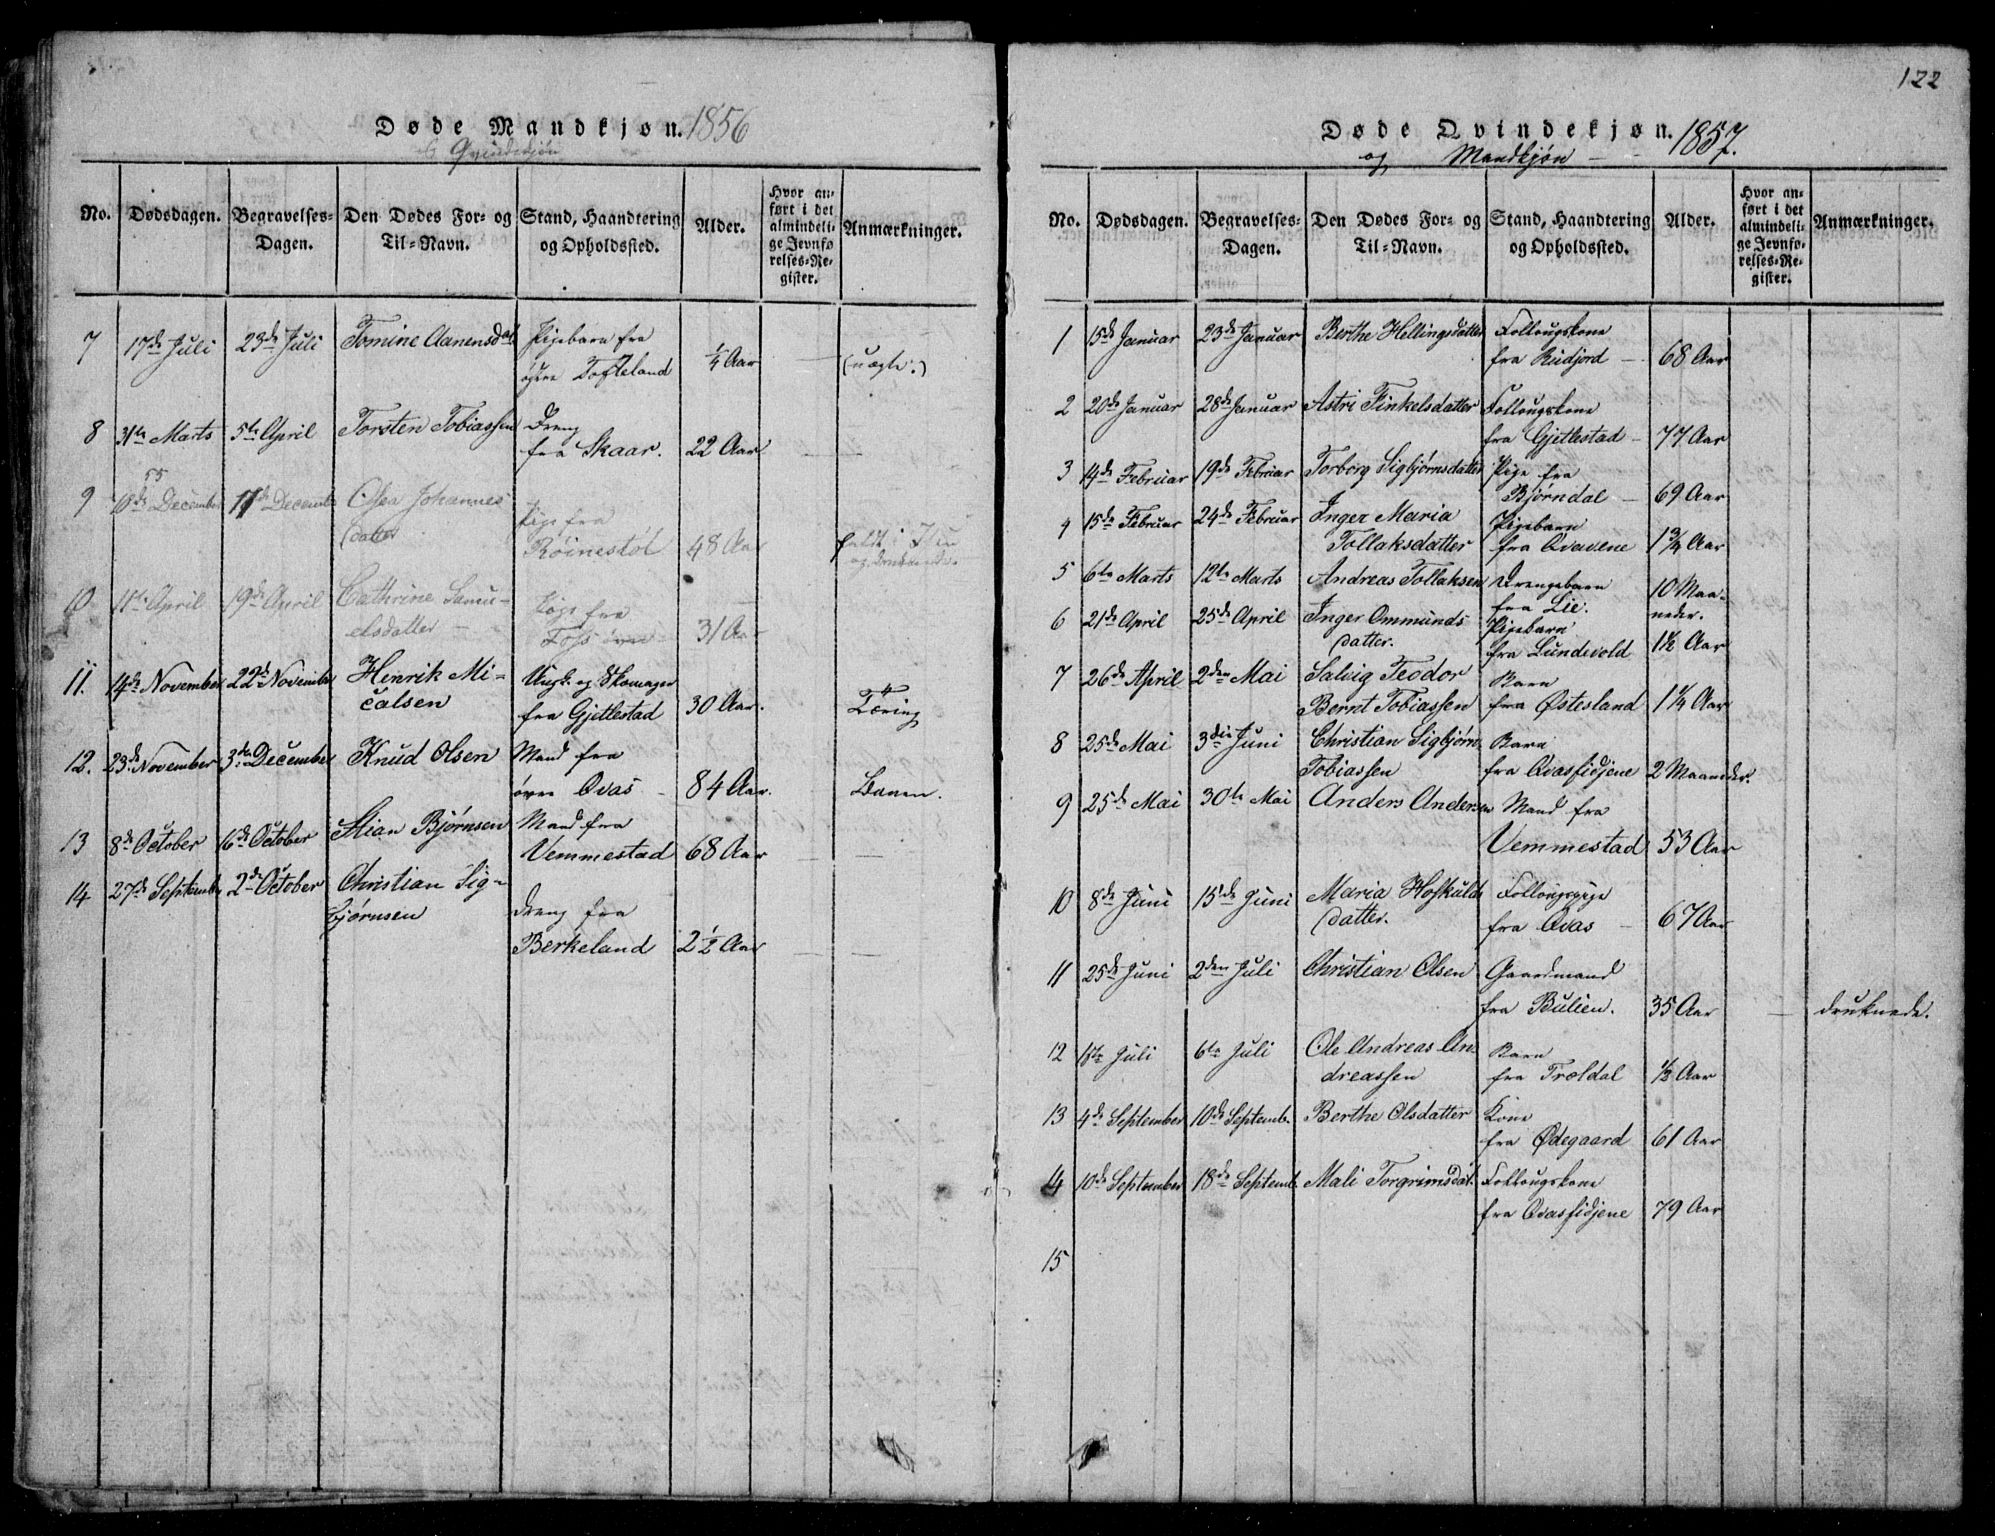 Døde Mandkjøn. 1856
& Qvindekjøn
No. Dødsdagen. Begravelses-Dagen. Den Dødes For- og Til-Navn. Stand, Haandtering og Opholdssted. Alder. Hvor anført i det almindelige Jevnførelses-Register. Anmærkninger.
7 17de Juli 23de Juli Tomine Aanensdat. Pigebarn fra
øvre Tofteland ¼ Aar (uægte.)
8 31te Marts 5te April Torsten Tobiassen Dreng
fra Skaar. 22 Aar
55
9 10de December 17de Decembr Olsea Johannes
datter Pige fra
Røinestøl 48 Aar faldt i
og druknede.
10 11te April 19de April Cathrine Samu-
elsdatter Pige fra
Foss øvre 31 Aar
11. 14de November 22de Novembr Henrik Mi-
calsen Ungk. og Skomager
fra Gjetlestad 30 Aar. Tæring
12. 23de November 3de December Knud Olsen Mand fra
øvre Qvas 84 Aar.
13 8de October 16de October Stian Bjørnsen Mand fra
Vemmestad 68 Aar
14 27de Septembr 2de October Christian Sig-
bjørnsen Dreng fra
Berkeland 2½ Aar
122
Døde Qvindekjøn. 1857.
og Mandkjøn
No. Dødsdagen. Begravelses-Dagen. Den Dødes For- og Til-Navn. Stand, Haandtering og Opholdssted. Alder. Hvor anført i det almindelige Jevnførelses-Register. Anmærkninger.
1 15de Januar 23de Januar Berthe Hellingsdatter Follougskone
fra Rudjord 68 Aar
2 20de Januar 28de Januar Astri Finkelsdatter Follougskone
fra Gjetlestad 77 Aar
3 14de Februar 19de Februar Torborg Sigbjørnsdatter Pige fra
Bjørndal 69 Aar
4 15de Februar 24de Februar Inger Maria
Tollaksdatter Pigebarn
fra Qvavene 1¾ Aar
5 6te Marts 12te Marts Andreas Tollaksen Drengebarn
fra Lie. 10 Maa-
neder.
6 21de April 25de April Inger Ommunds
datter. Pigebarn
fra Lundevold 1½ Aar
7 26de April 2den Mai Salvig Teodor
Bernt Tobiassen Barn
fra Østesland 1¼ Aar
8 25de Mai 3die Juni Christian Sigbjørn
Tobiassen Barn
fra Qvasfidjene 2 Maaneder.
9 25de Mai 30te Mai Anders Andersen Mand fra
Vemmestad 53 Aar
10 8de Juni 15de Juni Maria Hoskulds
datter. Follougspige
fra Qvas 67 Aar
11 25de Juni 2den Juli Christian Olsen Gaardmand
fra Bulien. 35 Aar druknede.
12 1ste Juli 6te Juli Ole Andreas An
dreassen Barn
fra Troldal ½ Aar
13 4de September 10de Septemb. Berthe Olsdatter Kone
fra Ødegaard 61 Aar
14 10de September 18de Septemb. Mali Torgrimsdat. Follougskone
fra Qvasfidjene 79 Aar
15